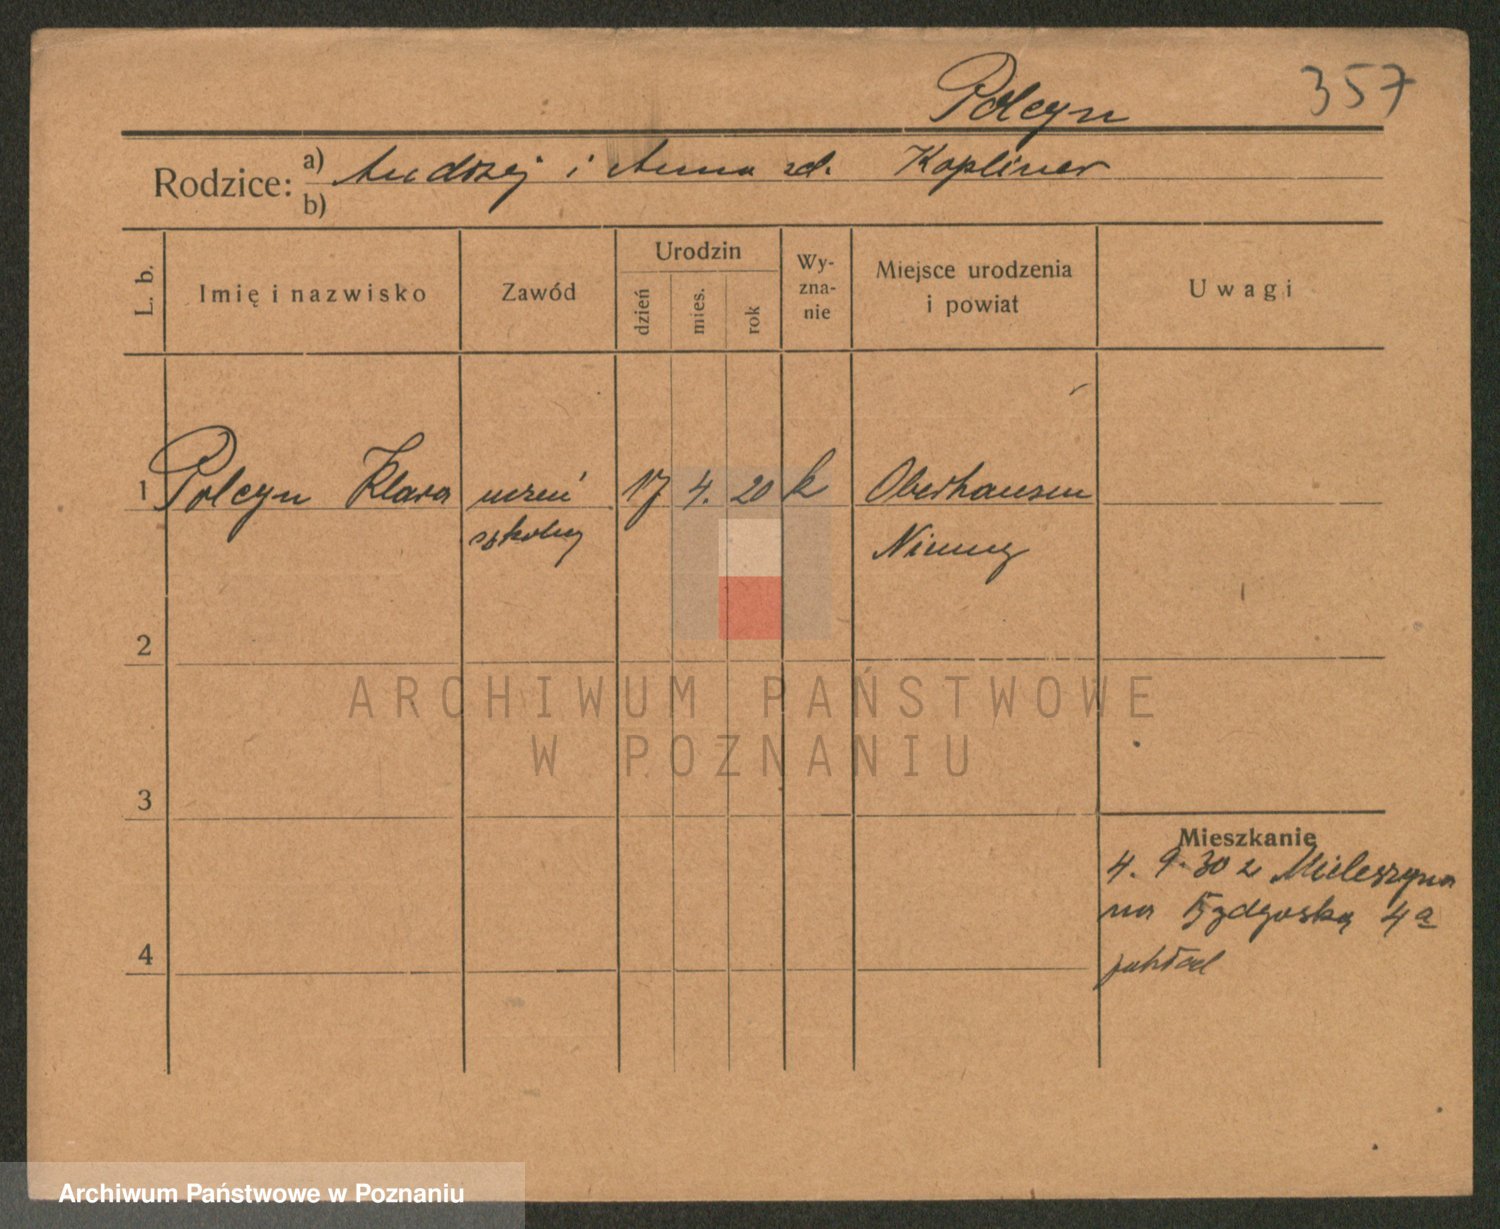 Polcyn 357
Rodzice: a) Andrzej i Anna zd. Kopliner
b)
L. b. Imię i nazwisko Zawód Urodzin dzień mies. rok Wyznanie Miejsce urodzenia i powiat Uwagi
1 Polcyn Klara uczeń 17 4. 20 k Oberhausen
szkolny Niemcy
2
ARCHIWUM PAŃSTWOWE
W POZNANIU
3
Mieszkanie
4. 9. 30 z Mieleszyna
na Bydgoską 4a
4
Archiwum Państwowe w Poznaniu